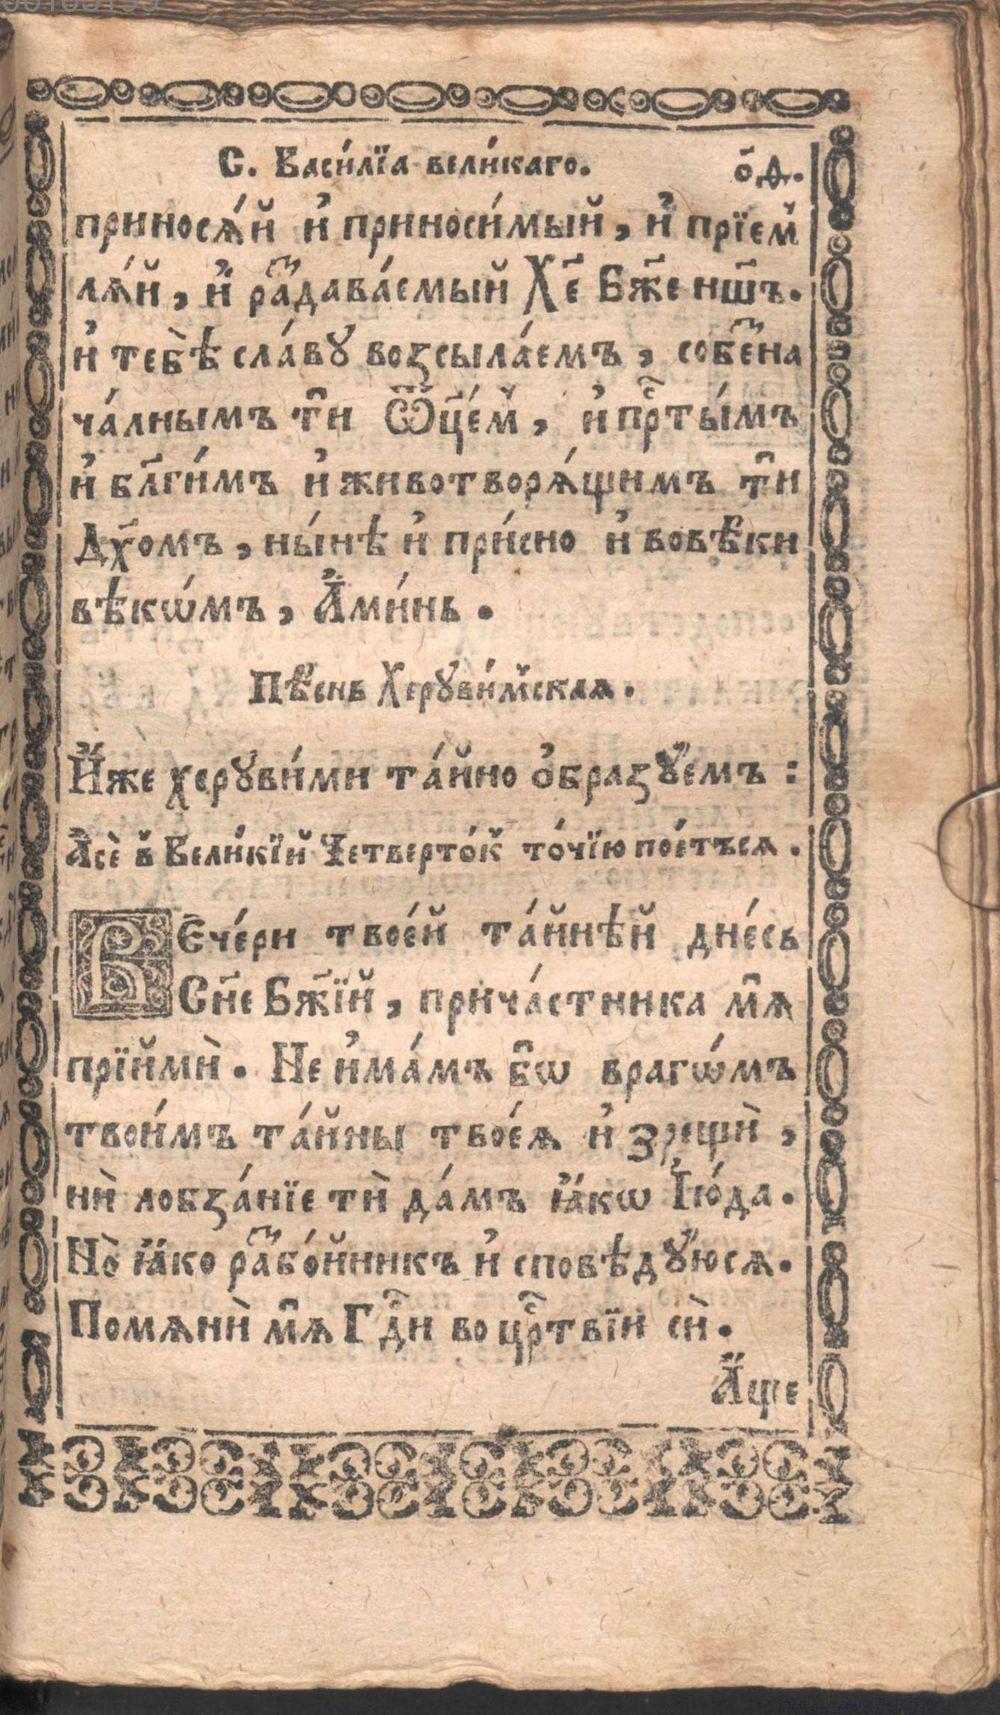 С. Васи́лїа вели́каго. о҃д.
приносѧ́й и҆ приноси́мый, и҆ прїемⷧ
лѧ́й, и҆ раⷥдава́емый Хе҃ Бж҃е нш҃ъ.
и҆ тебѣ̀ сла́вꙋ возсыла́емъ, собеⷥна
ча́лнымъ тѝ Ѿц҃е́мъ, и҆ прⷭ҇ты́мъ
и҆ бл҃ги́мъ и҆ животворѧ́щимъ тѝ
Дх҃омъ, ны́нѣ и҆ при́сно и҆ вовѣ́ки
вѣкѡ́мъ, А҆ми́нь.
Пѣ́снь Херꙋви́мⷭская.
И҆́же херꙋви́ми та́йно о҆бразꙋ́емъ :
А҆сѐ в̾ Вели́кїй Четверто́к̾ то́чїю пое́тъся.
ВЕче́ри твое́й та́йнѣй дне́сь
Сн҃е Бж҃їй, прича́стника мѧ̀
прїймѝ. Не и҆ма́мъ бѡ̀ врагѡ́мъ
твои́мъ та́йны твоеѧ́ и҆зрещѝ,
нѝ лобза́нїе тѝ да́мъ ꙗ҆́кѡ І҆ю́да.
Но̀ ꙗ҆́ко раⷥбо́йникъ и҆сповѣ́дꙋюсѧ.
Помѧнѝ мѧ̀ Гдⷭ҇и во црⷭ҇твїи сѝ.
А҆́ще